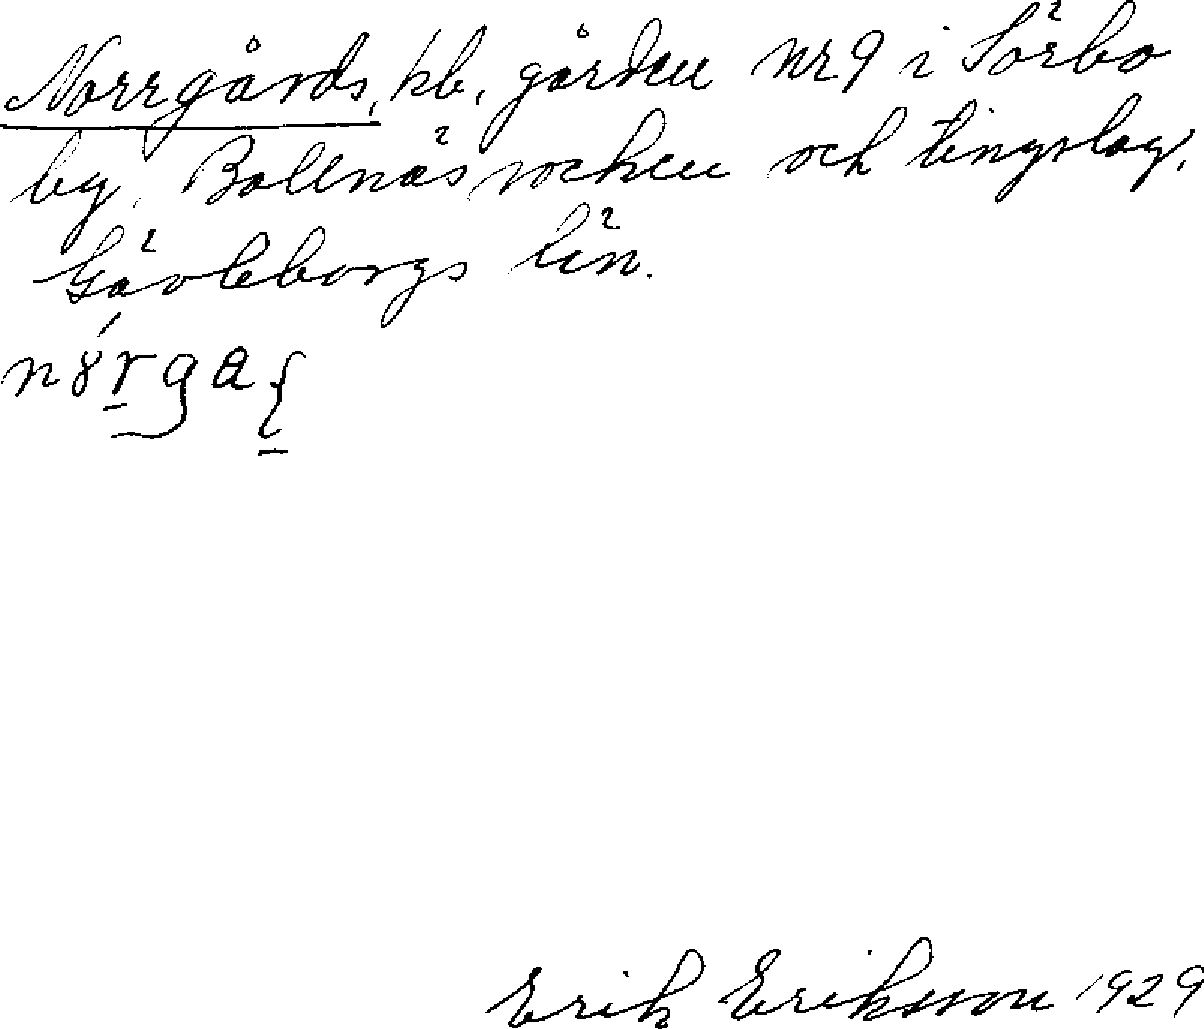 Norrgårds, kb, gården nr 9 i Sörbo
by, Bollnäs socken och tingslag,
Gävleborgs län.
Erik Eriksson 1929